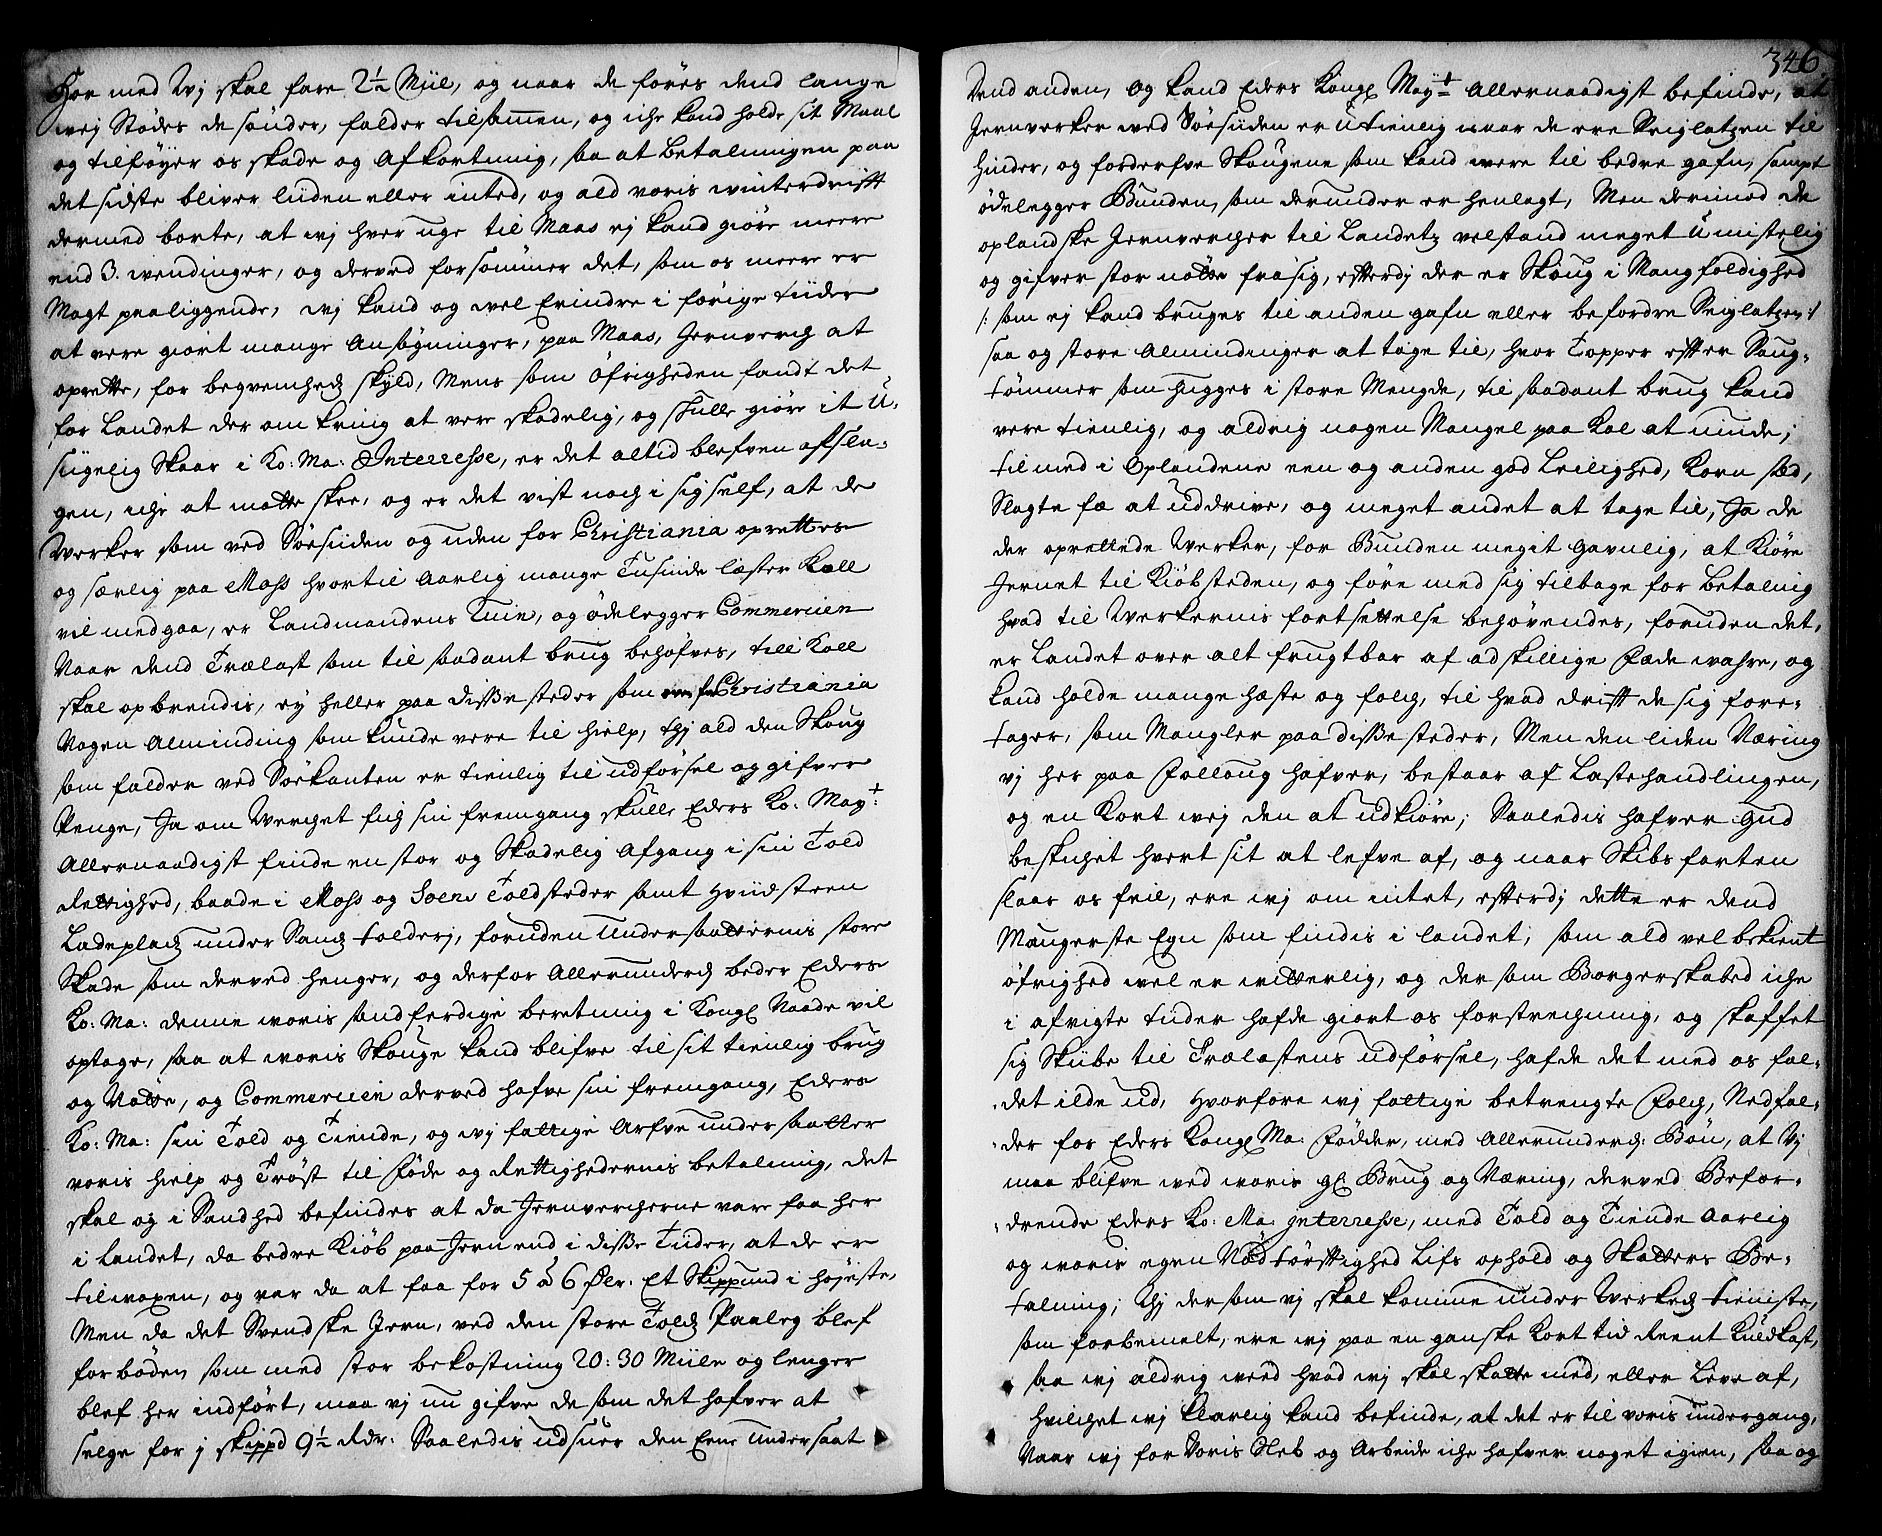 Hor med Wj skal fare 2½ Miil, og naar de föres dend lange
wej Stödes de sönder, falder tilsammen, og iche kand holde sit Maal
og tilföyer os skade og Afkortning, saa at betalningen paa
det sidste bliver liiden eller inted, og ald voris winterdrifft
dermed borte, at wj hver uge til Maas ej kand giöre meere
end 3. wendinger, og derved forsømmer det, som os meere er
Magt paaliggende, wj kand og wel Erindre i förige tiider
at vere giort mange Ansögninger, paa Maas, Jernverch at
oprette, for beqvemhed skyld, Mens som öfrigheden fandt det
for Landet der om kring at vere skadelig, og skulle giöre it U-
siigelig Skaar i Ko: Ma: Interresse, er det altid blefven afsla-
gen, iche at motte skee, og er det vist noch i sig self, at de
Werker som ved Söesiiden og uden for Christiania oprettes
og særlig paa Moss hvortil aarlig mange Tusinde læster Koll
vil medgaa, er Landmandens Ruin, og ödelegger Commercien
Naar dend Trælast som til saadant brug behöfves, till Koll
skal opbrendis, ey heller paa disse steder som Christiania
Nogen Alminding som kunde vere til hielp, thj ald den Skoug
som falder ved Söekanten er tienlig til udförsel og gifver
Penge, Ja om Verchet fich sin fremgang skulle Eders Ko: May:t
Allernaadigst finde en stor og Skadelig Afgang i sin Told
Rettighed, baade i Moss og Soens Toldsteder samt Hviidsteen
Ladeplads under Sands tolderj, foruden Undersaatternis store
Skade som derved henger, og derfor Allerunderd: beder Eders
Ko: Ma: denne woris sandferdige beretning i Kongl Naade vil
optage, saa at woris Skouge kand blifve til sit tienlig brug
og Nötte, og Commercien derved hafve sin fremgang, Eders
Ko: Ma: sin Told og Tiende, og wj fattige Arfve undersaatter
voris hielp og Tröst til Föde og Rettighedernis betalning, det
skal og i Sandhed befindes at da Jernvercherne vare faa her
i Landet, da bedre Kiöb paa Jern end i disse Tider, at de er
tilwoxen, og var da at faa for 5 à 6 Dlr: Et Skippund i höjeste,
Men da det Svendske Jern, ved den store Told Paaleg blef
forböden som med stor bekostning 20: 30 Miile og lenger
blef her indfört, maa vj nu gifve de som det hafver at
selge for j skippd 9½ Rdr: Saaledis udsuer den Eene Undersaat
346.
Dend anden, og kand Eders Kongl May:t Allernaadigst befinde, at
Jernverker ved Söesiiden er Utienlig naar de ere Seiglatzen til
hinder, og forderfve Skougene som kand were til bedre gafn, sampt
ödelegger Bunden, som derunder er henlagt, Men derimod de
oplandske Jernvercher til Landetz velstand meget Umistelig
og gifver stor nötte fra sig, efterdj der er Skoug i Mangfoldighed
/: som ej kand bruges til anden gafn eller befordre Seiglatzen :/
saa og store Almindinger at tage til, hvor Topper efter Saug-
tömmer som hugges i store Mengde, til saadant brug kand
vere tienlig, og aldrig nogen Mangel paa Kol at vinde;
til med i Oplandene een og anden god Leilighed, Korn sæd,
Slagte fæ at uddrive, og meget andet at tage til, Ja de
der oprettede Werker, for Bunden megit Gavnlig, at Kiöre
Jernet til Kiöbsteden, og före med sig tilbage for betalnig
hvad til Werkernis fortsettelse behövendes, foruden det,
er Landet over alt frugtbar af adskillige Föde wahre, og
kand holde mange hæste og folch, til hvad drifft de sig fore-
tager, som Mangler paa disse steder, Men den liden Næring
vj her paa Follong hafver, bestaar af Lastehandlingen,
og en Kort wej den at udkiöre; Saaledis hafver Gud
beskichet hvert sit at lefve af, og naar Skibs farten
slaar os feil, ere wj om intet, efterdj dette er dend
Maugerste Egn som findis i landet; som ald vel bekient
öfrighed wel er witterlig, og der som Borgerskabed iche
i afvigte tider hafde giort os forstrechning, og skaffet
sig Skibe til Trælastens udförsel, hafde det med os fal-
det ilde ud, Hvorfore wj fattige betrengte Folch, Nedfal-
der for Eders Kongl Ma: Födder, med Allerunderd: Bön, at Vj
maa blifve ved woris gl Brug og Næring, derved Befor-
drende Eders Ko: Ma: Interresse, med Told og Tiende Aarlig
og woris egen Nödtörfftighed Lifs ophold og Skatters Be-
talning; Thj der som vj skal komme under Werked tieniste,
som forbemelt, ere wj paa en ganske Kort tid Reent Kuldkast,
saa wj aldrig weed hvad wj skal skatte med, eller Leve af,
hvilchet wj klarlig kand befinde, at det er til voris undergang,
Naar wj for Voris Sleb og Arbeide iche hafver noget igien, saa og